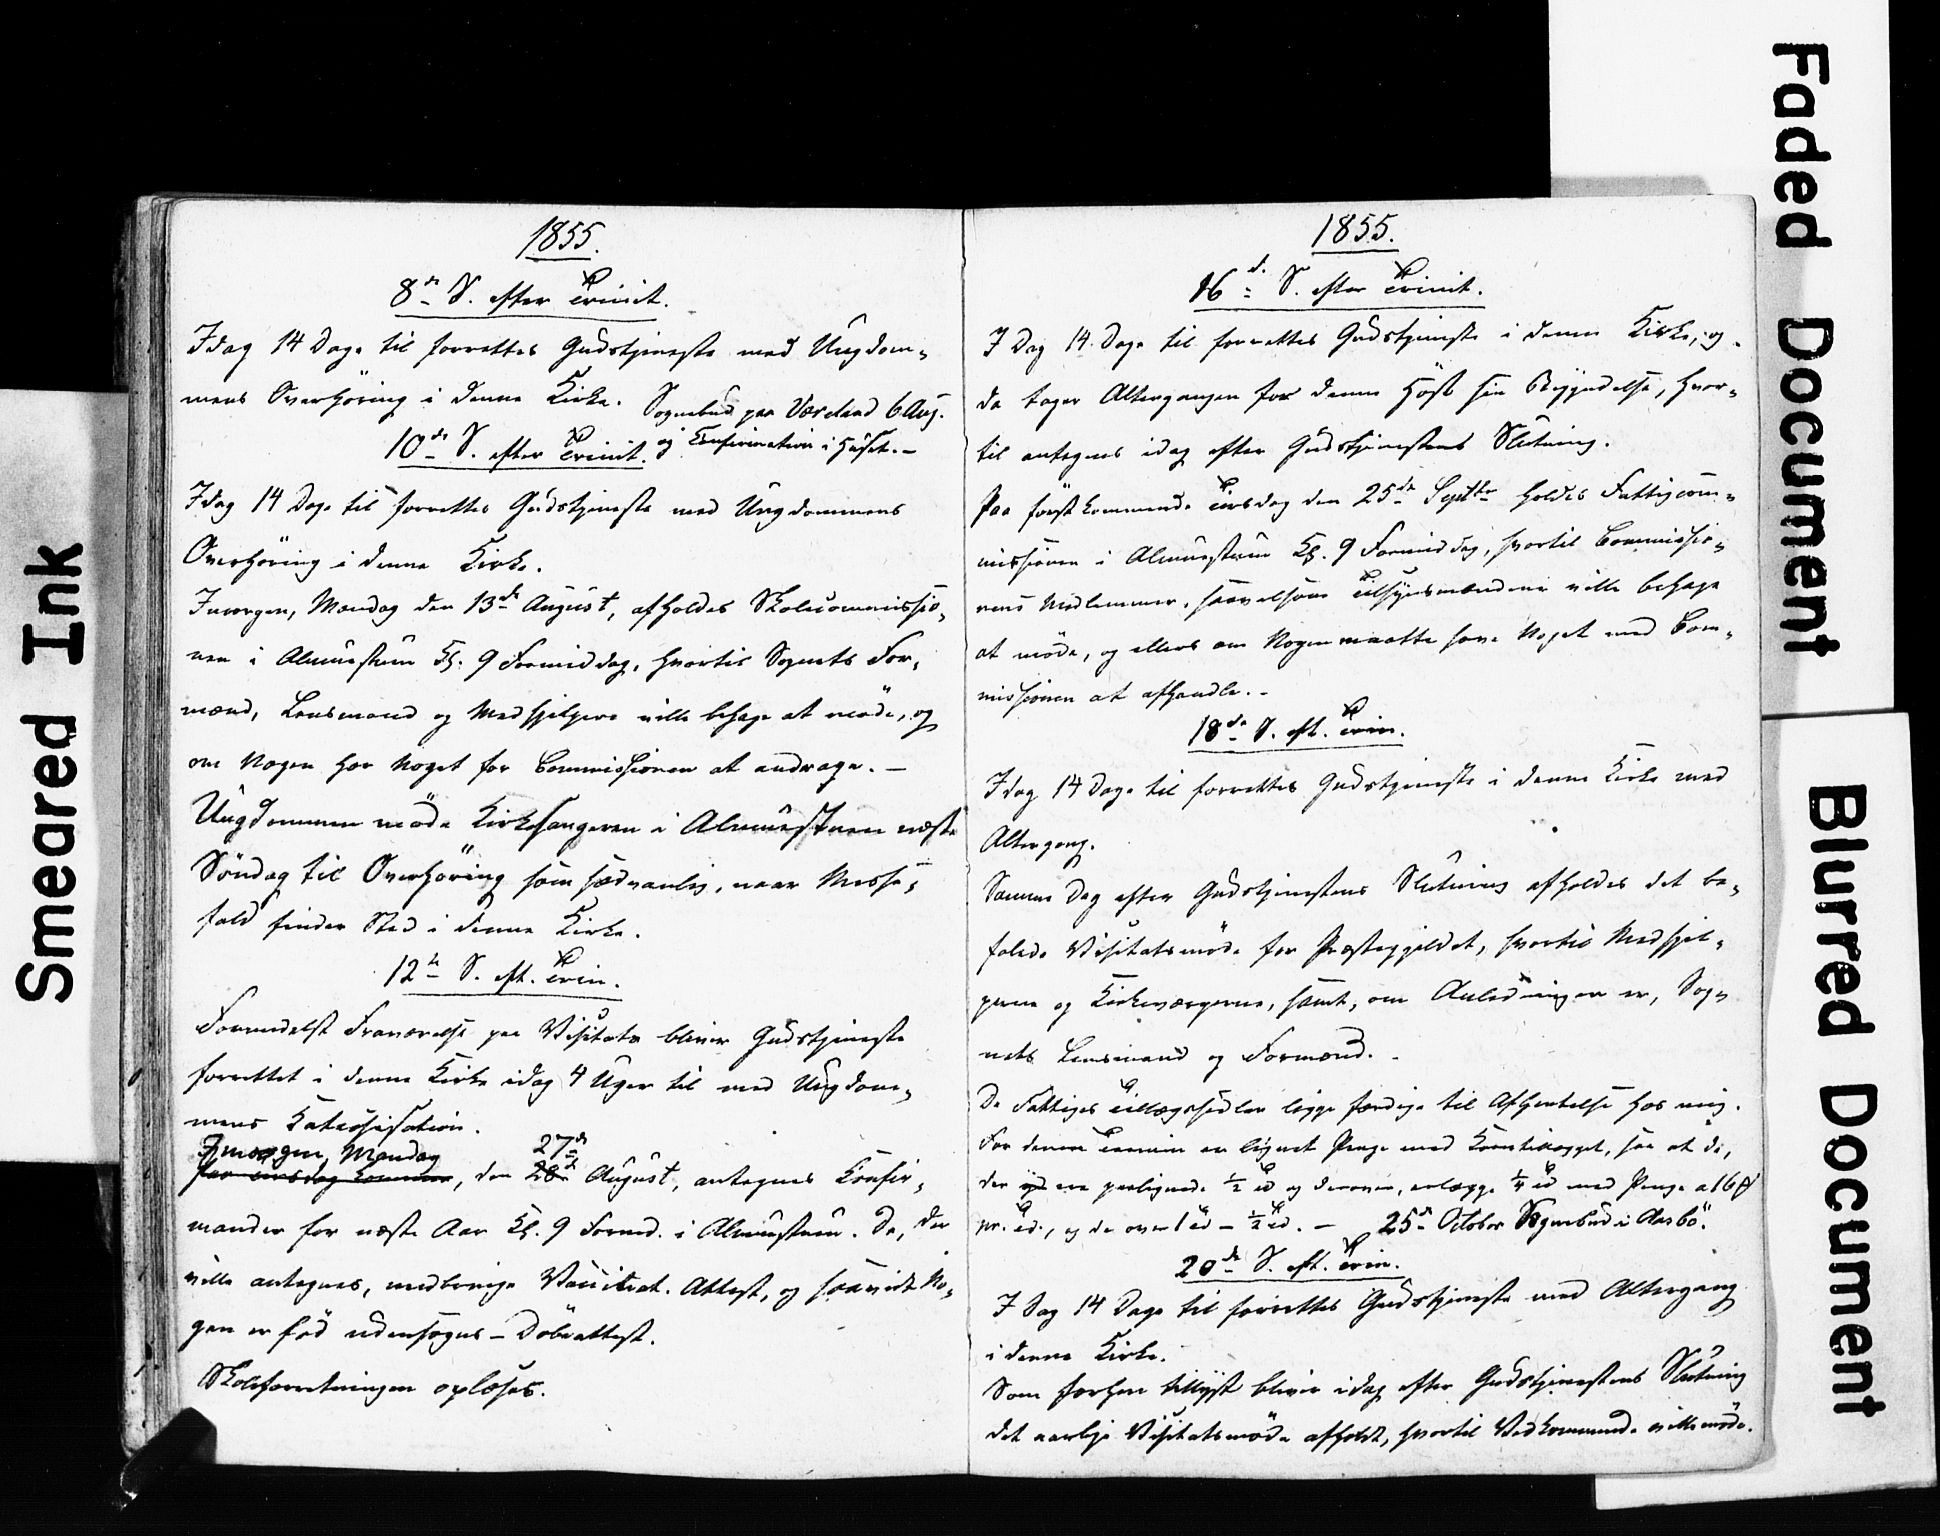 Smeared Ink
1855.
8de S. efter Trinit.
Idag 14 Dage til forrettes Gudstjeneste med Ungdom-
mens Overhøring i denne Kirke. Sognebud paa Værland 6 Aug.
og Confirmation i Huset. -
10de S. efter Trinit.
Idag 14 Dage til forrettes Gudstjeneste med Ungdommens
Overhøring i denne Kirke.
Imorgen, Mandag den 13de August, afholdes Skolecommissio-
nen i Almuestuen Kl. 9 Formiddag, hvortil Sognets For-
mænd, Lensmand og Medhjelpere ville behage at møde, og
om Nogen har Noget for Commissionen at andrage. -
Ungdommen møde Kirkesangeren i Almuestuen næste
Søndag til Overhøring som sædvanlig, naar Messe-
fald finder Sted i denne Kirke.
12te S. eft. Trin.
Formedelst Fraværelse paa Visitats bliver Gudstjeneste
forrettet i denne Kirke idag 4 Uger til med Ungdom-
mens Katechisation.
Imorgen, Mandag 27de
paa Tirsdag kommer, den 28de August, antegnes Confir-
mander for næste Aar Kl. 9 Formd. i Almuestuen. De, der
ville antegnes, medbringe Vaccinat. Attest, og saavidt No-
gen er fød udensogns - Døbeattest.
Skoleforretningen oplæses.
1855.
16de S. efter Trinit.
I Dag 14 Dage til forrettes Gudstjeneste i denne Kirke, og
da tager Altergangen for denne Høst sin Begyndelse, hvor-
til antegnes idag efter Gudstjenestens Slutning.
Paa førstkommende Tirsdag den 25de Septbr holdes Fattigcom-
missionen i Almuestuen Kl. 9 Formiddag, hvortil Commissio-
nens Medlemmer, saavelsom Tilsynsmændene ville behage
at møde, og ellers om Nogen maatte have Noget med Com-
missionen at afhandle. -
18de S. eft. Trin.
Idag 14 Dage til forrettes Gudstjeneste i denne Kirke med
Altergang.
Samme Dag efter Gudstjenestens Slutning afholdes det be-
falede Visitatsmøde for Præstegjeldet, hvortil Medhjel-
perne og Kirkeværgerne, samt, om Anledningen er, Sog-
nets Lensmand og Formænd. -
De Fattiges Tillægssedler ligge færdige til Afhentelse hos mig.
For denne Termin er lignet Penge med Korntillægget, saa at de,
der ere paalignede 1/2 Td og derover, erlægge 1/4 Td med Penge a 16 ß
pr. Td., og de over 1 Td - 1/2 Td. - 25de October Sognebud i Aarbø.
20de S. eft. Trin.
I Dag 14 Dage til forrettes Gudstjeneste med Altergang
i denne Kirke.
Som forhen tillyst bliver idag efter Gudstjenestens Slutning
det aarlige Visitatsmøde afholdt, hvortil Vedkommende ville møde.
Faded Document
Blurred Document